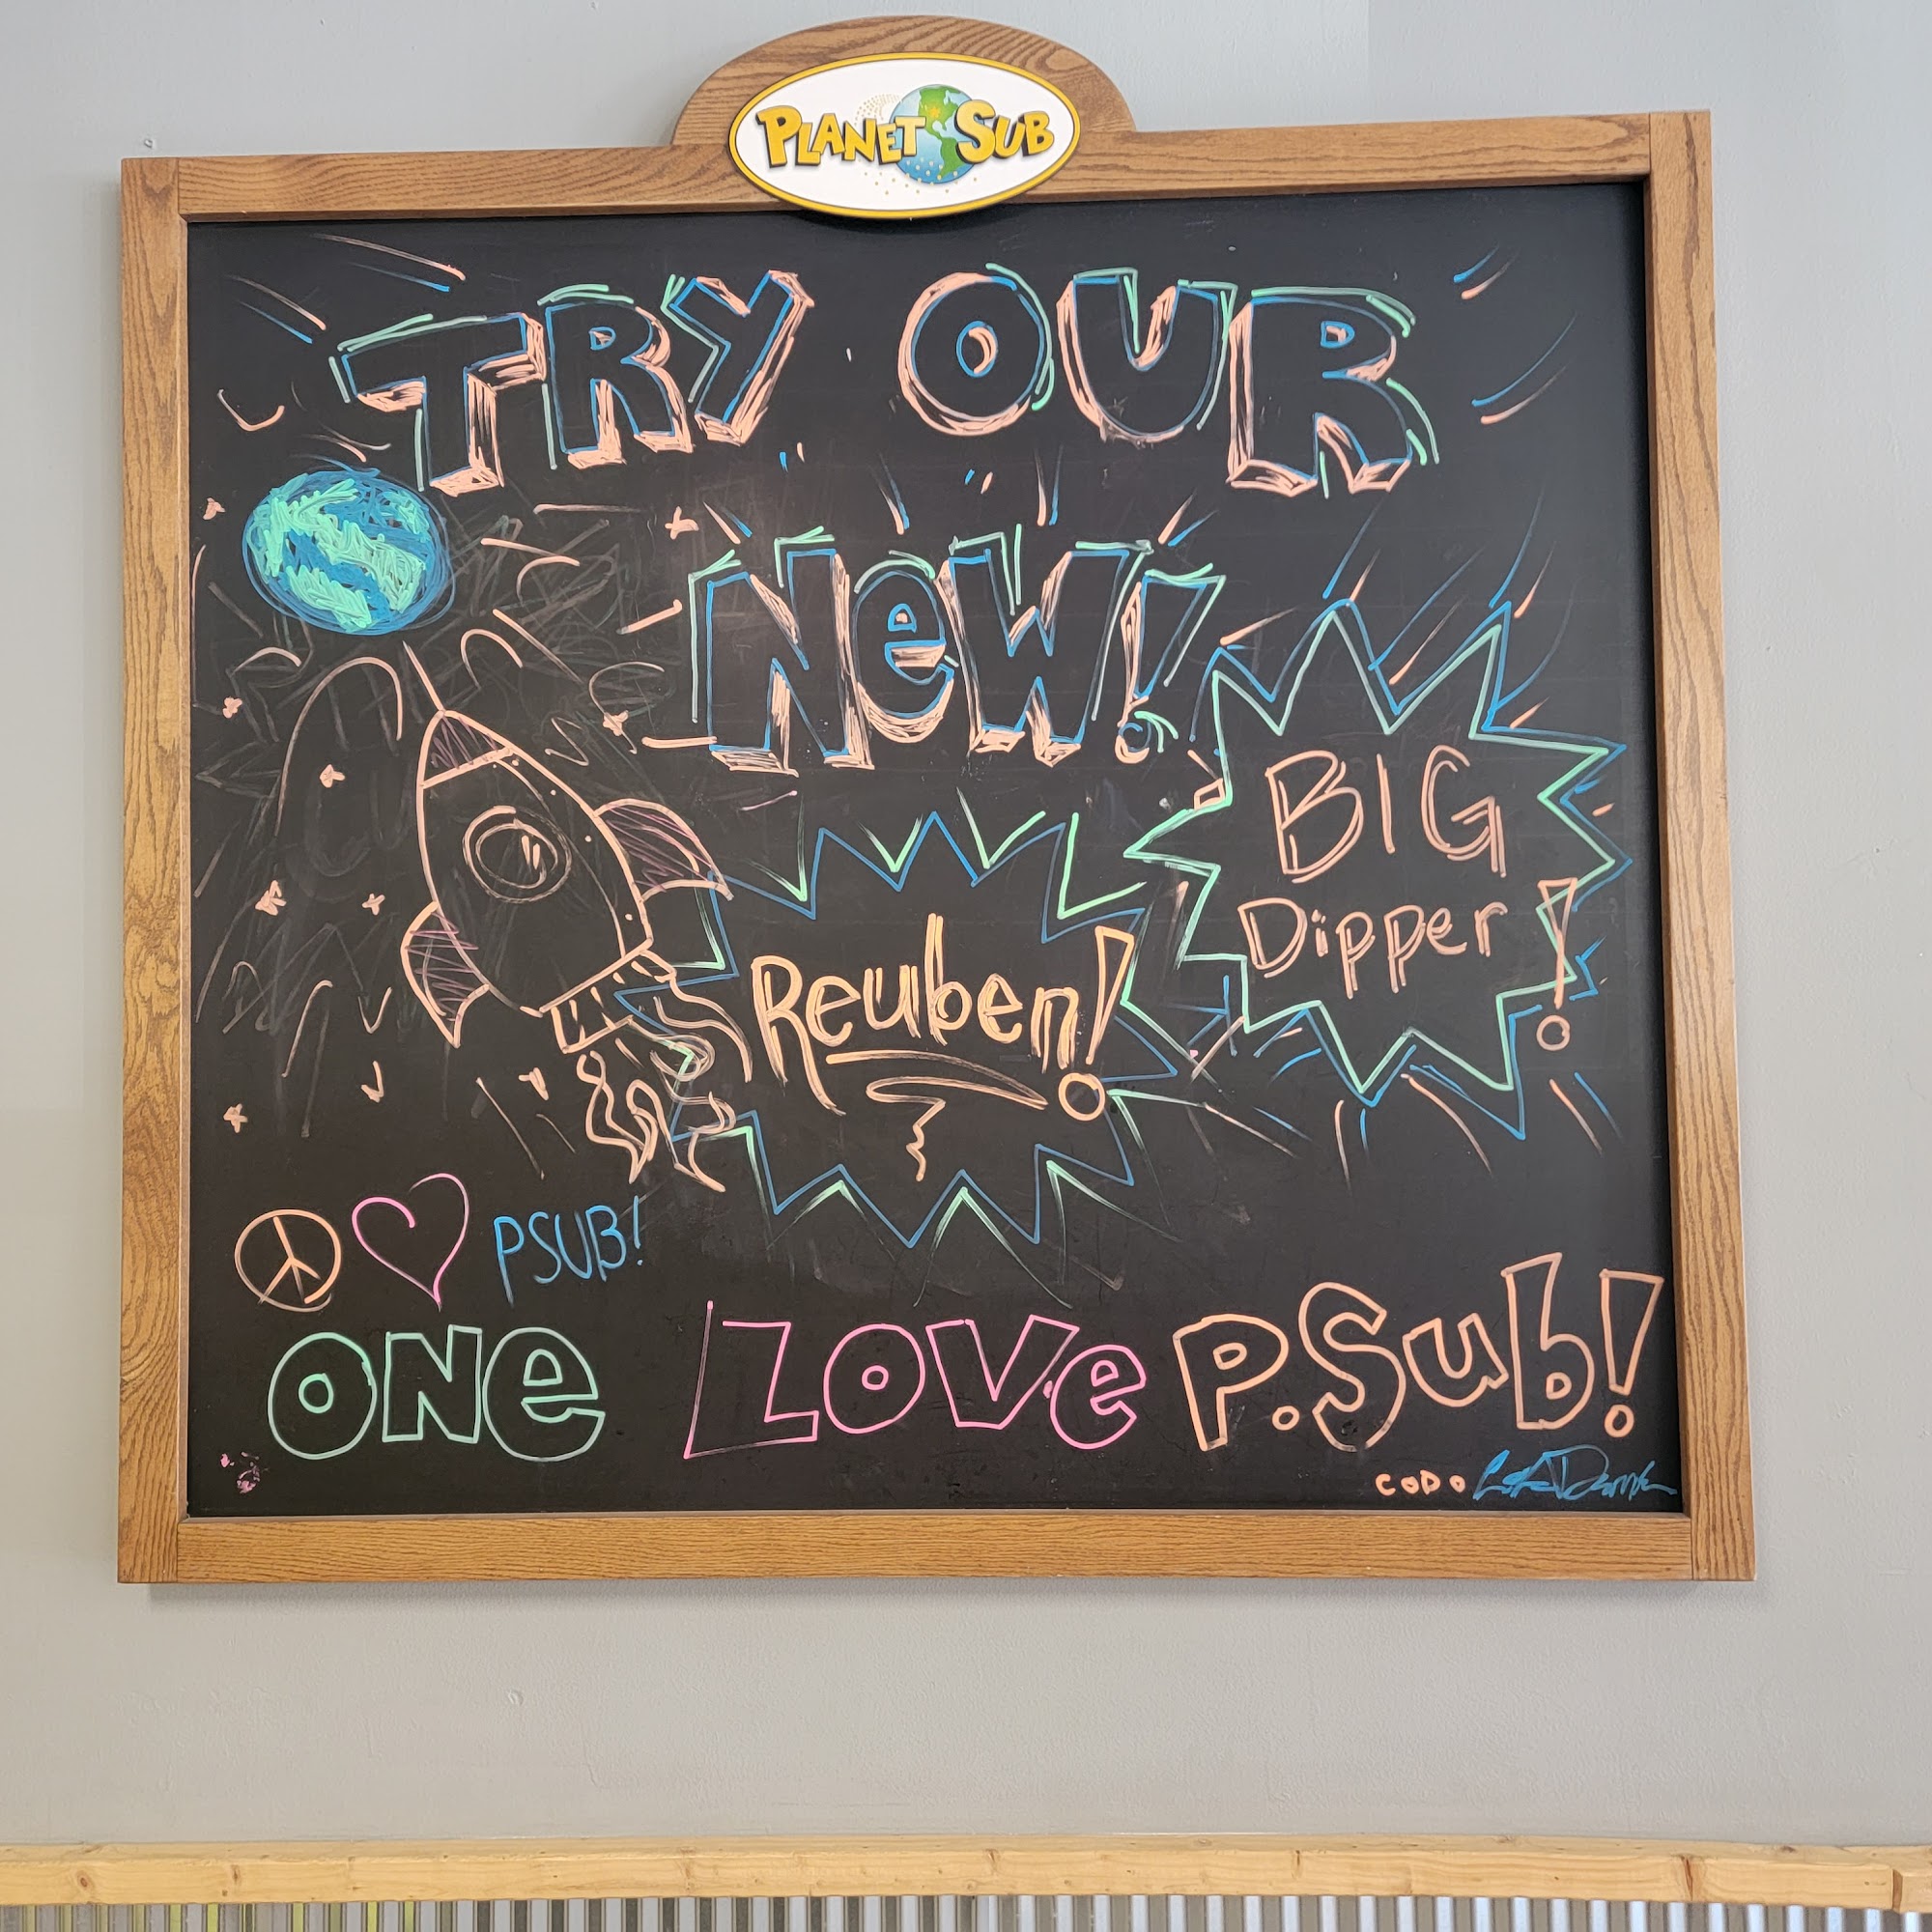 PLANET SUB
TRY OUR
NeW!
BIG
Dipper!
Reuben!
PSUB!
ONe Love P.Sub!
CODO